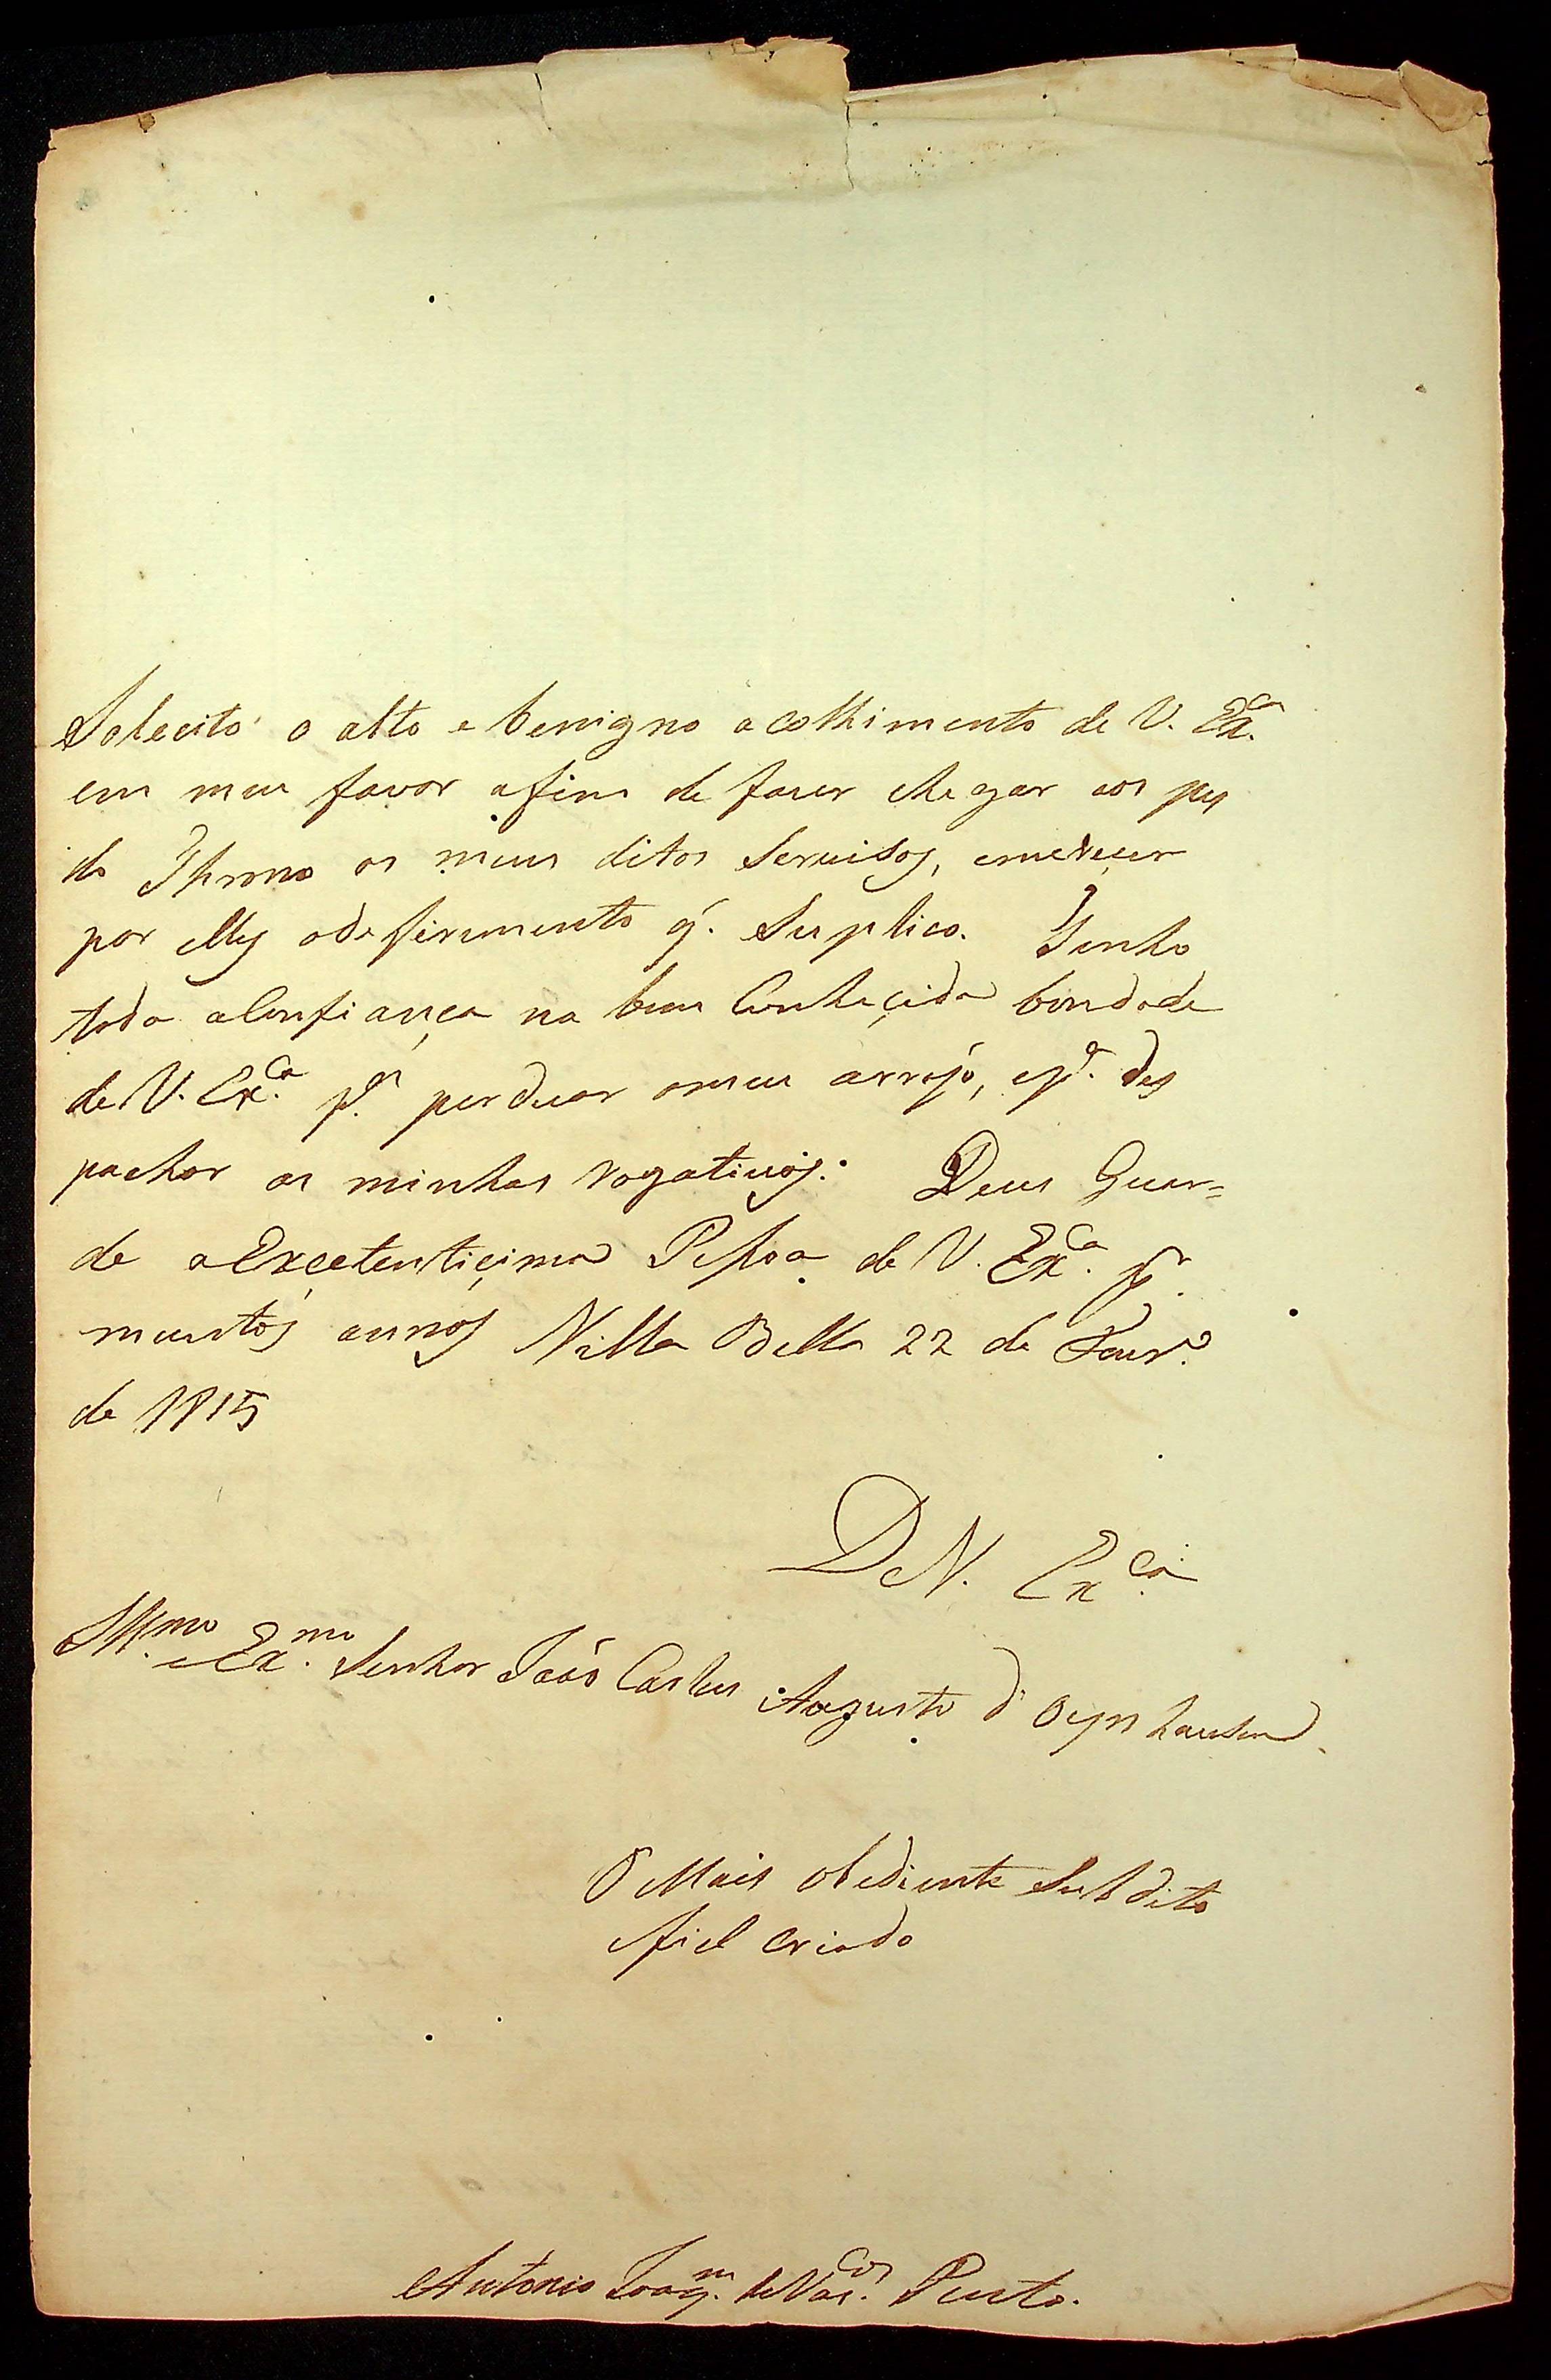 Solecito o alto e benigno acolhimento de V. Ex.ca
em meu favor afim de faser chegar aos pes
do Throno os meus ditos Servisos, emereçer
por elles odeferimento q.' Suplico. Tenho
toda aConfiança na bem Conheçida bondade
de V. Ex.ca p.a perduar omeu arrojo, ep.a des
pachar as minhas rogativas: Deus Guar=
de aExcelentiçima Pessoa de V. Ex.ca p.r
muntos annos Villa Bella 22 de
de 1815
DeV. Ex.ca
Ill.mo e Ex.mo Senhor João Carlos Augusto d' Oeynhausen
O Mais obediente Subdito
efiel criado
Antonio Joaq.m Pinto.